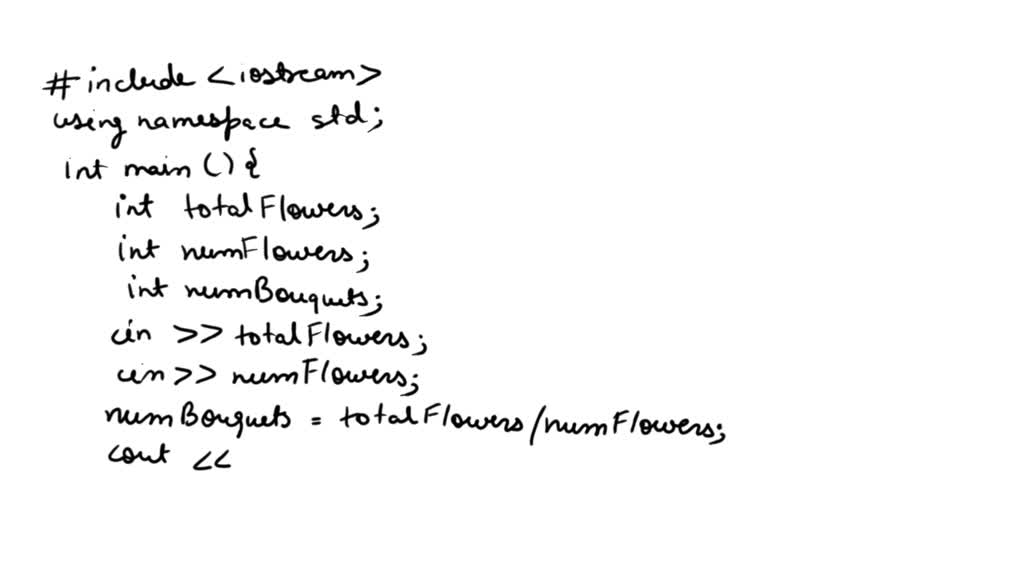 #include <iostream>
using namespace std;
int main () {
int totalFlowers;
int numFlowers;
int numBouquets;
cin >> totalFlowers;
cin >> numFlowers;
numBouquets = totalFlowers/numFlowers;
cout <<